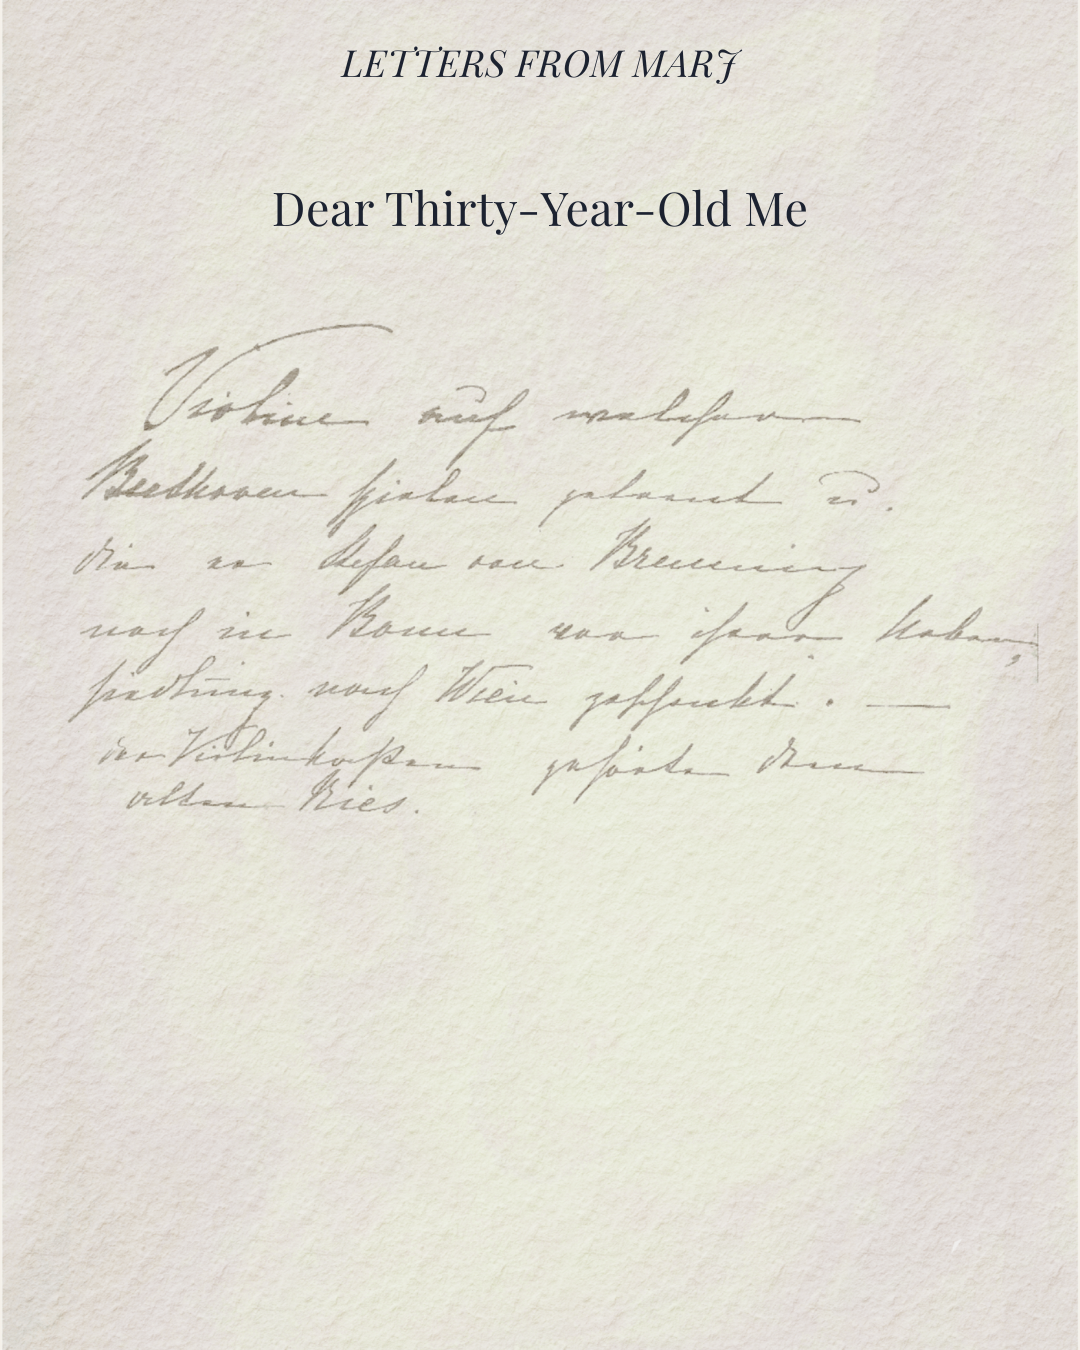 LETTERS FROM MARJ
Dear Thirty-Year-Old Me
Violine auf welcher
Beethoven spielen gelernt u.
die er Stefan von Breuning
noch in Bonn vor ihrer Ueber,
siedlung nach Wien geschenkt. —
der Violinkasten gehörte dem
alten Ries.